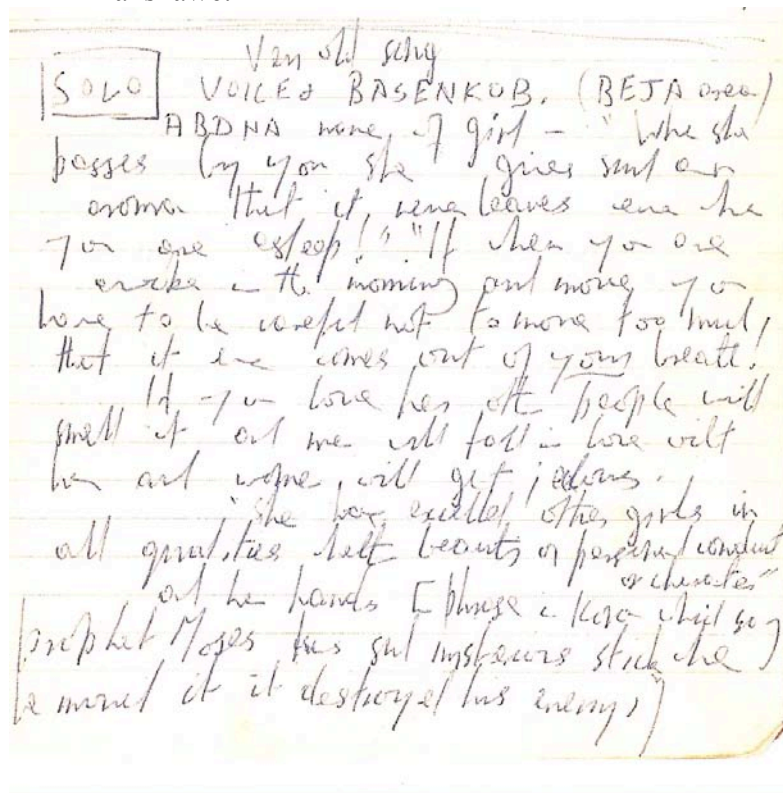 Very old song
SOLO VOICE & BASENKOB. (BEJA area)
ABDNA name of girl - "Whe she
passes by you she gives such an
aroma that it never leaves even whe
you are asleep!" "If when you are
awake in the morning and move you
have to be careful not to move too much,
that it even comes out of your breath!
If you love her oth people will
smell it and me will fall in love with
her and wome will get jealous.
"She has excelled other girls in
all qualities both beauty or personal conduct
or character"
and her hands [phrase in Koran which say
prophet Moses has such mysterious stick whe
he moved it it destroyed his enemy,]